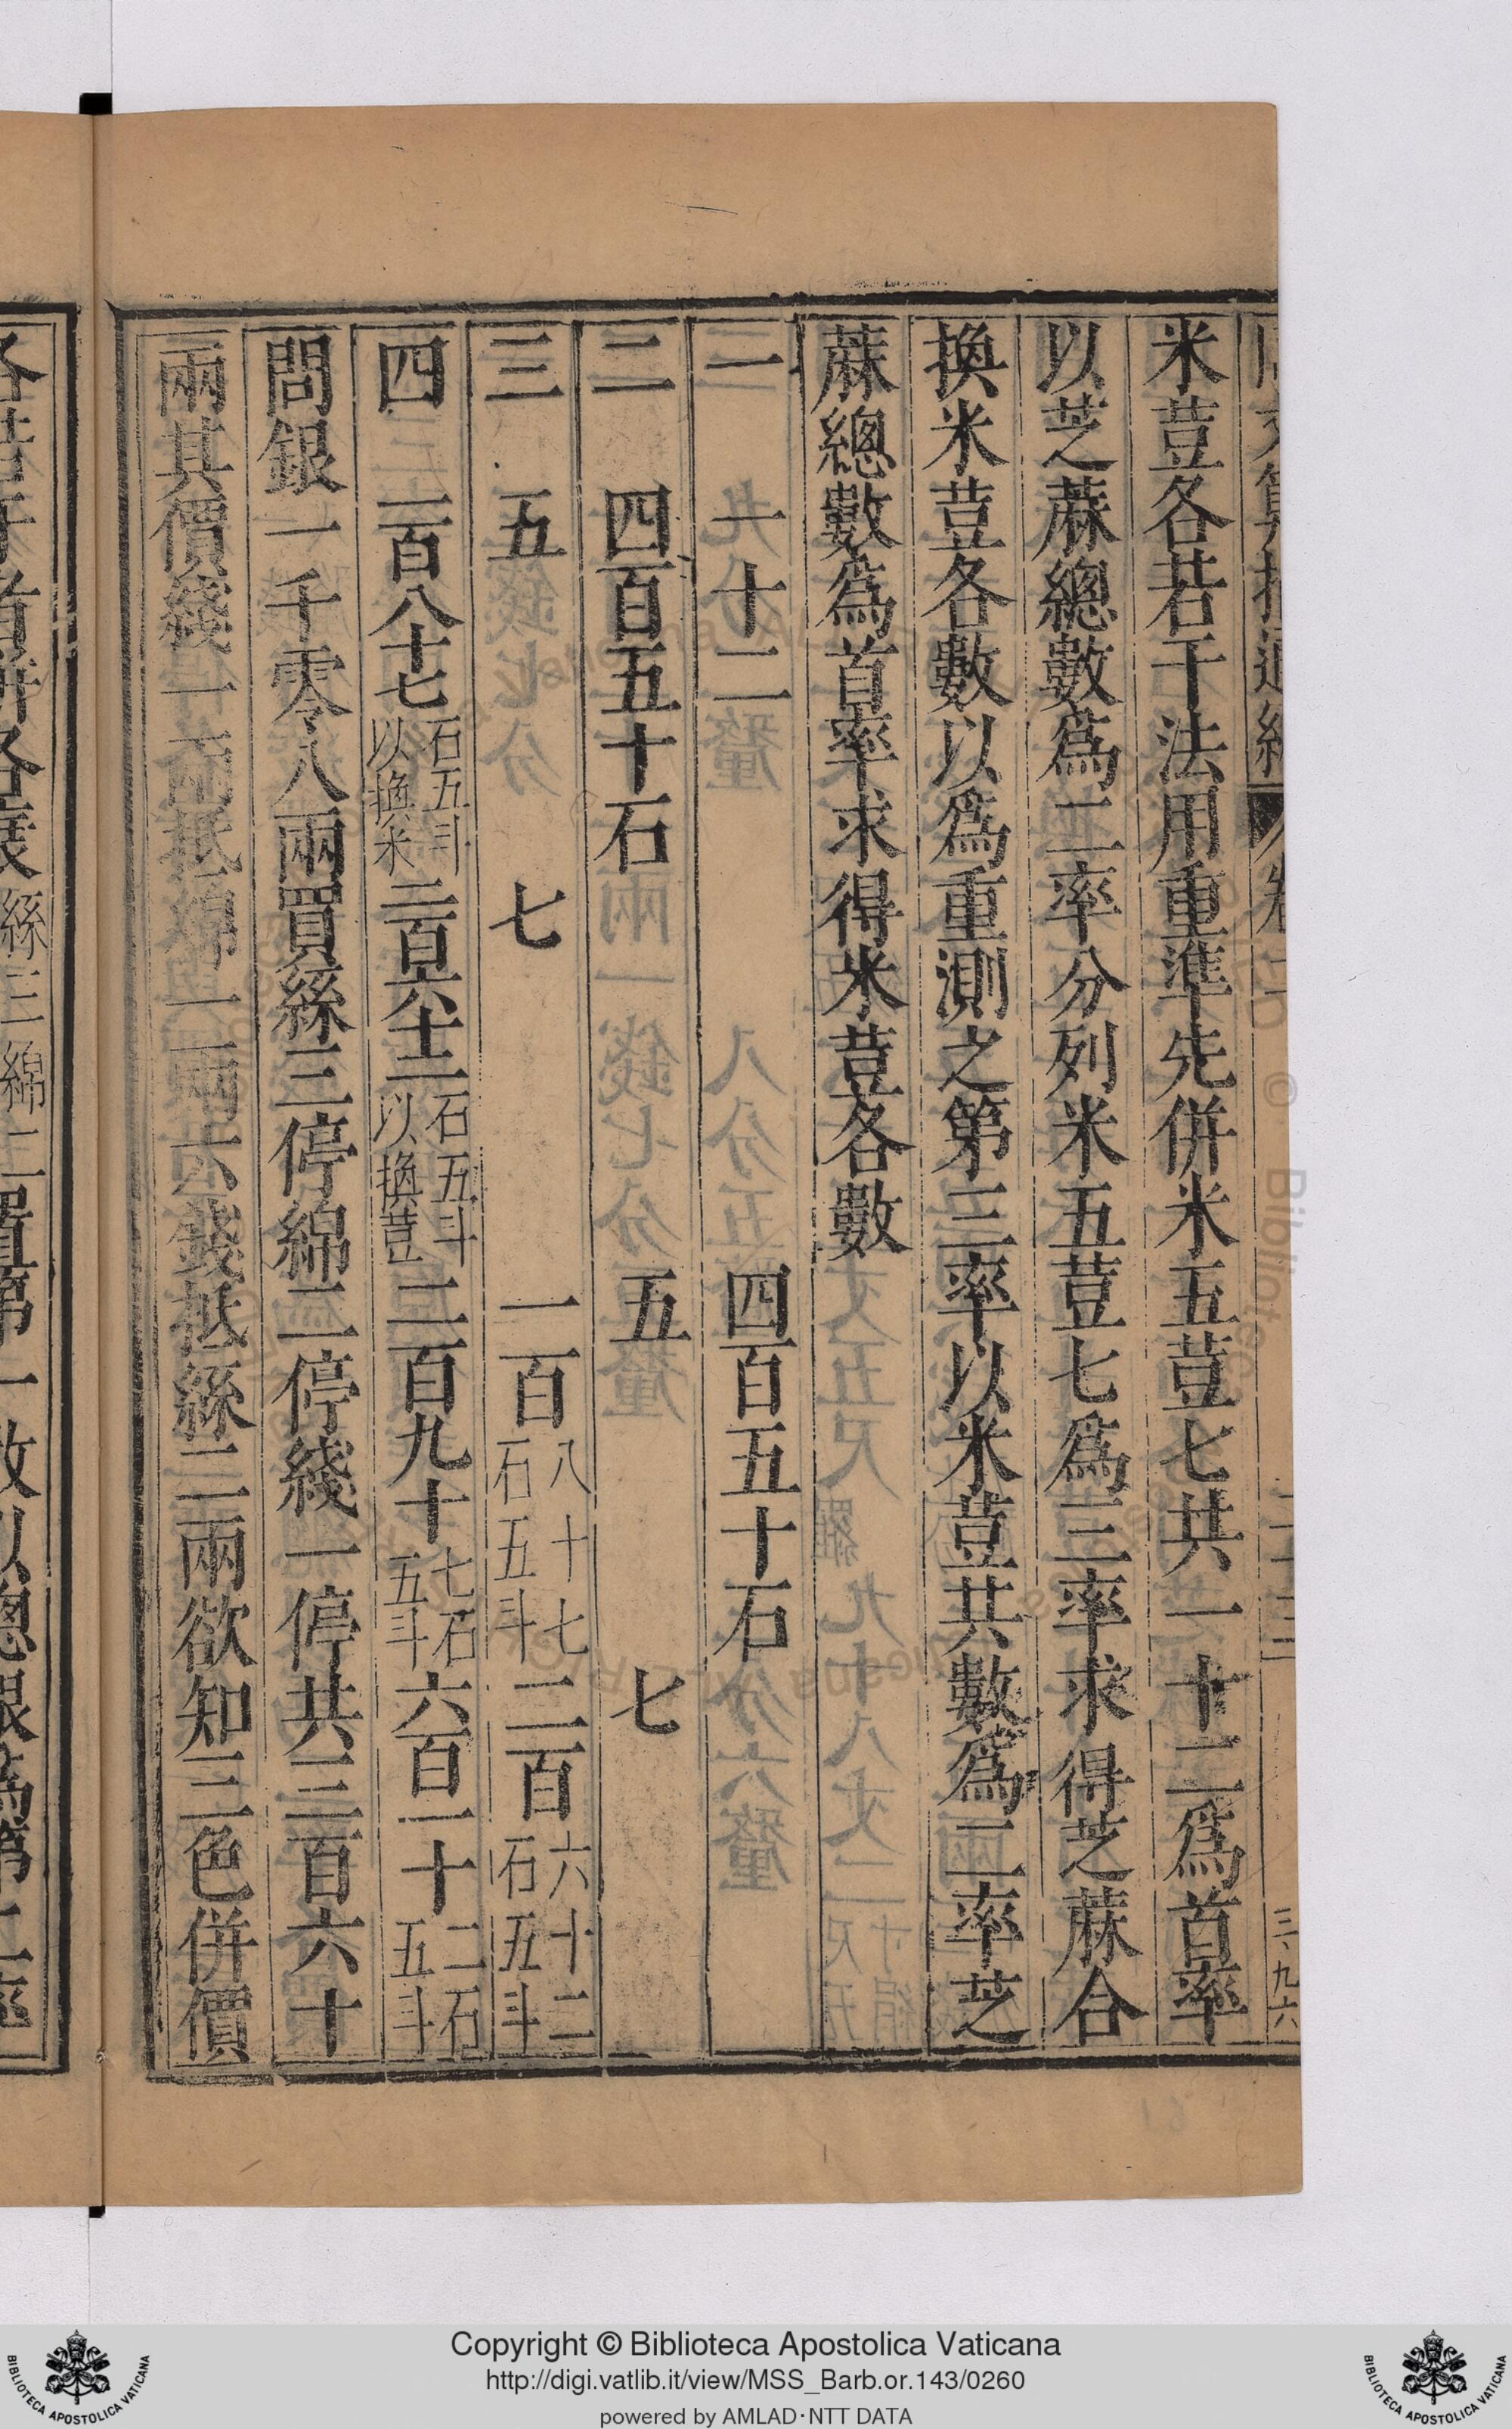 同文算指通編 卷二 二十三 三九六
米荳各若干法用重準先併米五荳七共一十二爲首率
以芝蔴總數爲二率分列米五荳七爲三率求得芝蔴合
換米荳各數以爲重測之第三率以米荳共數爲二率芝
蔴總數爲首率求得米荳各數
一 一十二 四百五十石
二 四百五十石 五 七
三 五 七 一百八十七石五斗 二百六十二石五斗
四 一百八十七石五斗以換米 二百六十二石五斗以換荳 二百九十七石五斗 六百一十二石五斗
問銀一千零八兩買絲三停綿二停綫一停共三百六十
兩其價綫一兩抵綿一兩六錢抵絲二兩欲知三色併價
各若干首併各衰絲三綿二置第一數以總銀爲第二率
Copyright © Biblioteca Apostolica Vaticana
http://digi.vatlib.it/view/MSS_Barb.or.143/0260
powered by AMLAD·NTT DATA
BIBLIOTECA APOSTOLICA VATICANA
BIBLIOTECA APOSTOLICA VATICANA